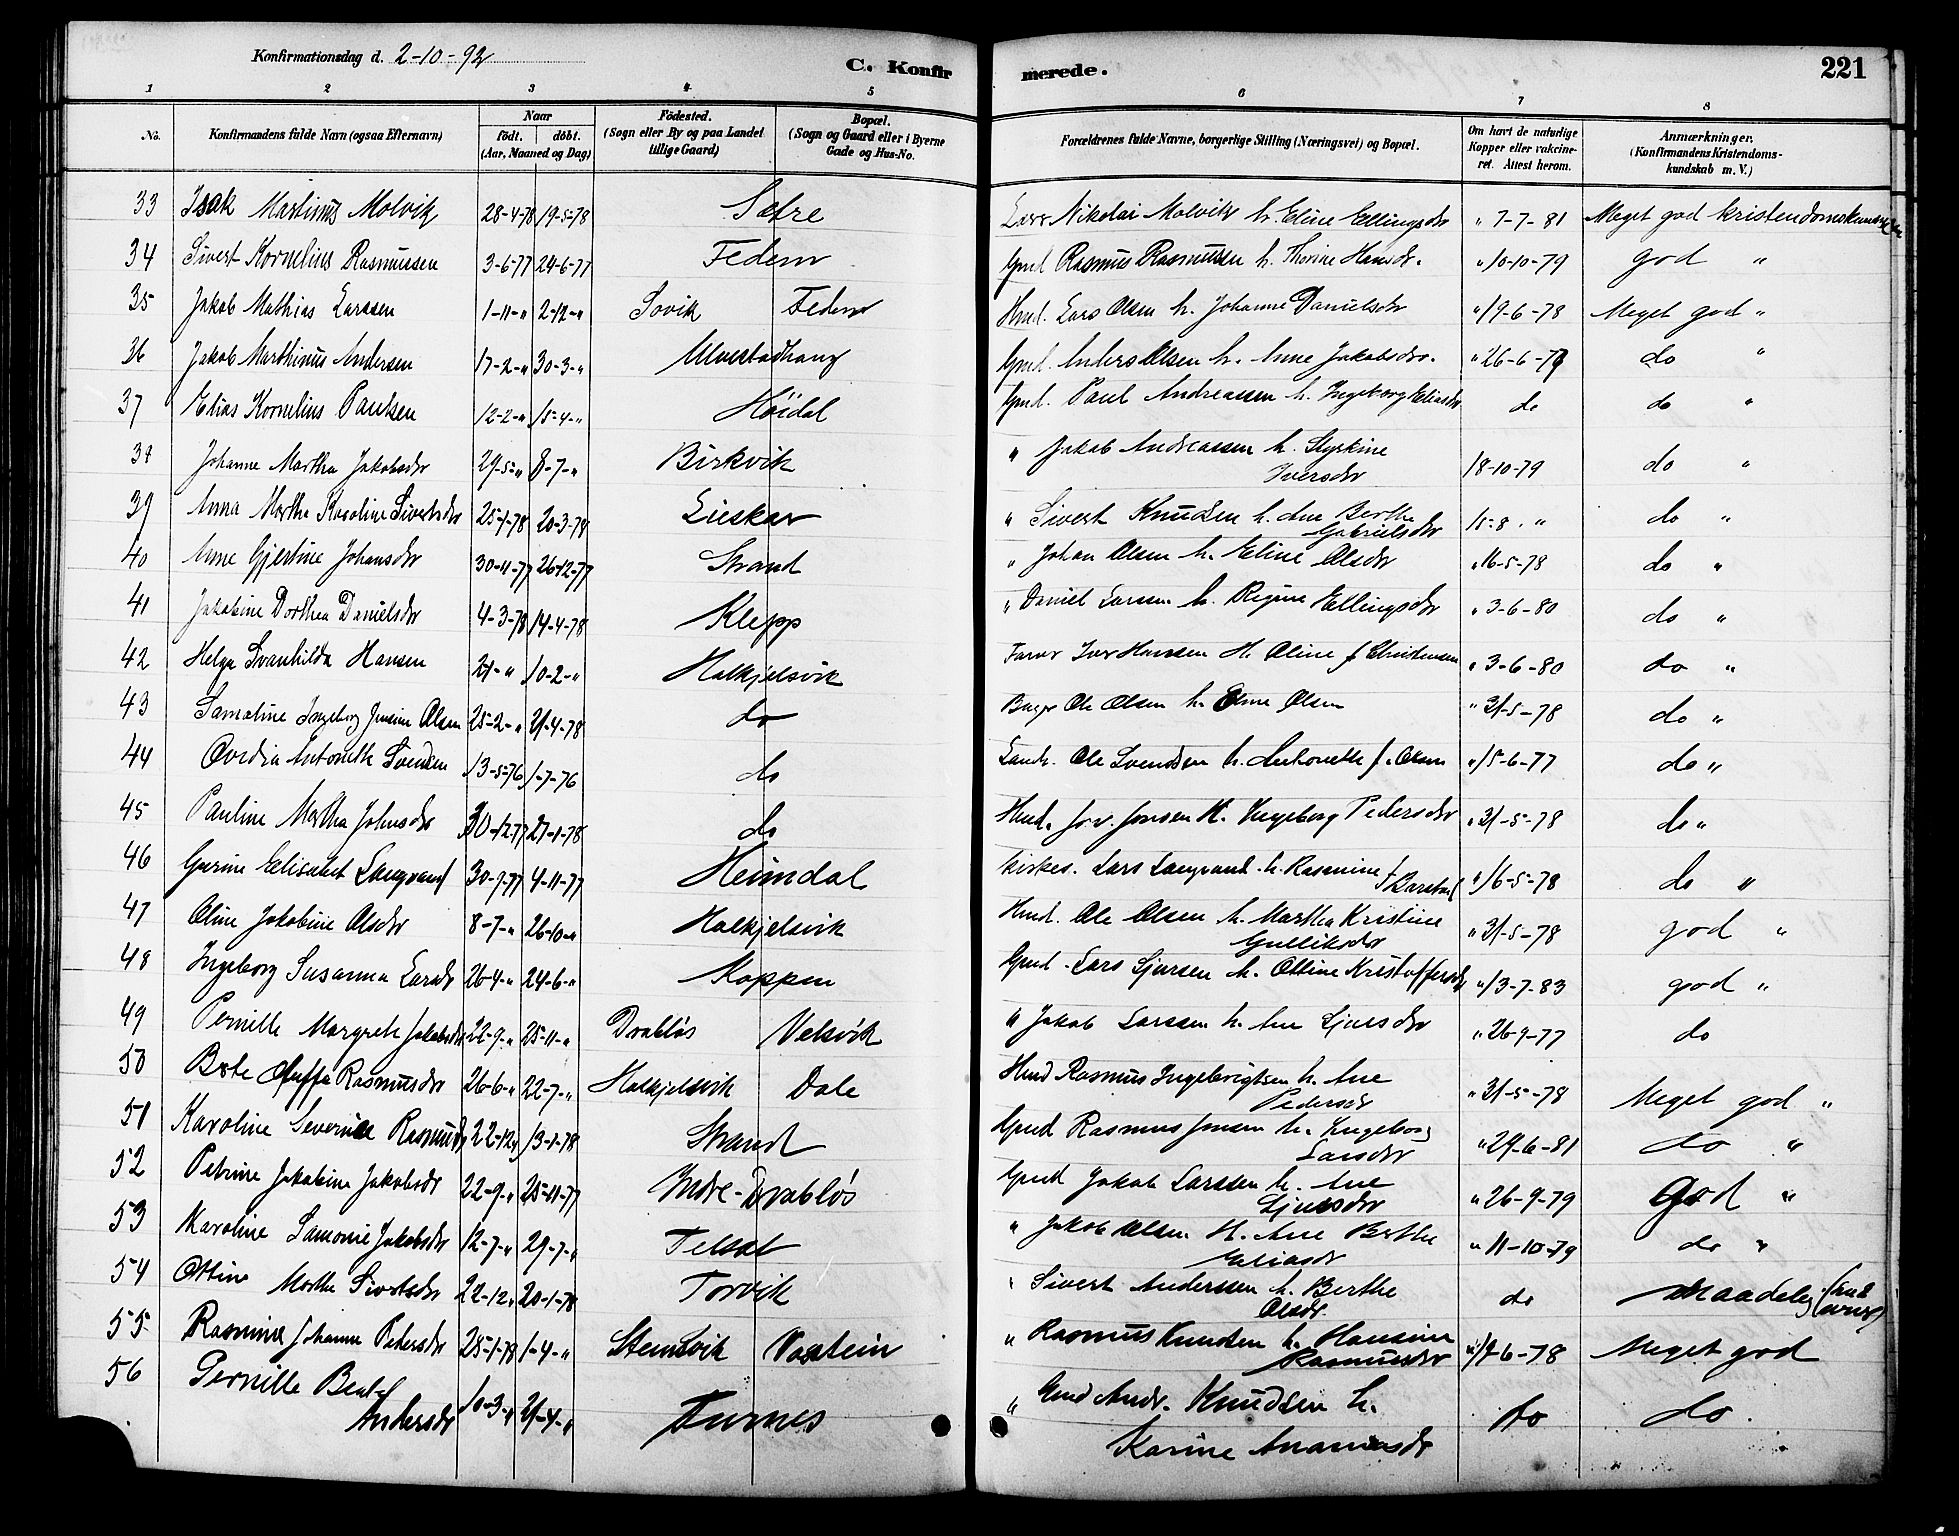 Konfirmationsdag d. 2-10-92 C. Konfirmerede. 221
1 2 3 4 5 6 7 8
No. Konfirmandens fulde Navn (ogsaa Efternavn) Naar födt. döbt. (Aar, Maaned og Dag) Födested. (Sogn eller By og paa Landet tillige Gaard) Bopæl. (Sogn og Gaard eller i Byerne Gade og Hus-No. Forældrenes fulde Navne, borgerlige Stilling (Næringsvei) og Bopæl. Om havt de naturlige Kopper eller vakcineret. Attest herom. Anmærkninger. (Konfirmandens Kristendomskundskab m. V.)
33 Isak Martinus Molvik 28-4-78 19-5-78 Sætre Nikolai Molvik h. Eline Ellingsdr " 7-7-81 Meget god kristendomskundsk
34 Sivert Kornelius Rasmussen 3-6-77 24-6-77 Gmd Rasmus Rasmussen h. Thorine Hansdr. " 10-10-79 god "
35 Jakob Mathias Larssen 1-11-" 2-12-" Sovik Hmd. Lars Olsen h. Johanne Danielsdr " 19-6-78 Meget god "
36 Jakob Marthinus Andersen 17-2-" 30-3-" Ulvestadhaug Gmd. Anders Olsen h. Anne Jakobsdr. " 26-6-79 do "
37 Elias Kornelius Paulsen 12-2-" 15-4-" Höidal Gmd. Paul Andreassen h. Ingeborg Eliasdr do do "
38 Johanne Martha Jakobsdr 29-5-" 8-7-" Birkvik " Jakob Andreassen h. Styrkine Iversdr 18-10-79 do "
39 Anna Martha Karoline Sivertsdr 25-1-78 20-3-78 Lieskar " Sivert Knudsen h. Ane Berthe Gabrielsdr 15-8-" do "
40 Anne Gjertine Johansdr 30-11-77 26-12-77 Strand " Johan Olsen h. Eline Olsdr " 16-5-78 do "
41 Jakobine Dorthea Danielsdr 4-3-78 14-4-78 Klepp " Daniel Larsen h. Regine Ellingsdr " 3-6-80 do "
42 Helga Svanhilda Hansen 10-2-" Halkjelsvik Farver Iver Hansen H. Oline f Christensen " 3-6-80 do "
43 Samoline Ingeborg Jensine Olsen 25-2-" 21-4-78 do Ole Olsen h. Olsen " 31-5-78 do "
44 Ovidia Antonette Svendsen 13-5-76 1-7-76 do Landh. Ole Svendsen h. Antonette f. Olsen " 15-6-77 do "
45 Pauline Martha Johnsdr 30-12-77 27-1-78 do Hmd. Jonsen H. Ingeborg Pedersdr " 31-5-78 do "
46 Gurine Elisabet Langvand 30-9-77 4-11-77 Heimdal Kirkes. Lars Langvand h. Rasmine f Barstad " 16-5-78 do "
47 Oline Jakobine Olsdr 8-7-" 26-10-" Halkjelsvik Hmd. Ole Olsen h. Martha Kristine Gulliksdr " 31-5-78 god "
48 Ingeborg Susanna Larsdr 26-4-" 24-6-" Koppen Gmd. Lars Sjursen h. Ottine Kristoffersdr " 13-7-83 god "
49 Pernille Margrete Jakobsdr 22-9-" 25-11-" Drabløs Velsvik " Jakob Larssen h. Ane Sjursdr " 26-9-77 do
50 Berte Rasmusdr 26-6-" 22-7-" Halkjelsvik Dale Hmd Rasmus Ingebrigtsen h. Ane Pedersdr " 31-5-78 Meget god "
51 Karoline Severine Rasmusdr 22-12-" 13-1-78 Strand Gmd Rasmus Jonsen h. Ingeborg Larsdr " 29-6-81 do "
52 Petrine Jakobine Jakobsdr 22-9-" 25-11-77 Indre-Drabløs Gmd Jakob Larssen h. Ane Sjursdr " 26-9-79 god "
53 Karoline Samonie Jakobsdr 12-7-" 29-7-" " Jakob Olsen H. Ane Berthe Eliasdr " 11-10-79 do "
54 Ottine Marthe Sivertsdr 22-12-" 20-1-78 Torvik " Sivert Anderssen h. Berthe Olsdr. do Maadelig
55 Rasmine Johanne Petersdr 28-1-78 1-4-" Stemsvik Vastein " Rasmus Knudsen h. Hansine Rasmusdr 6-78 Meget god
56 Pernille Andersdr 10-3-" 21-4-" Furnes " Gmd Andr. Knudsen h. Karine Ananiasdr do do.